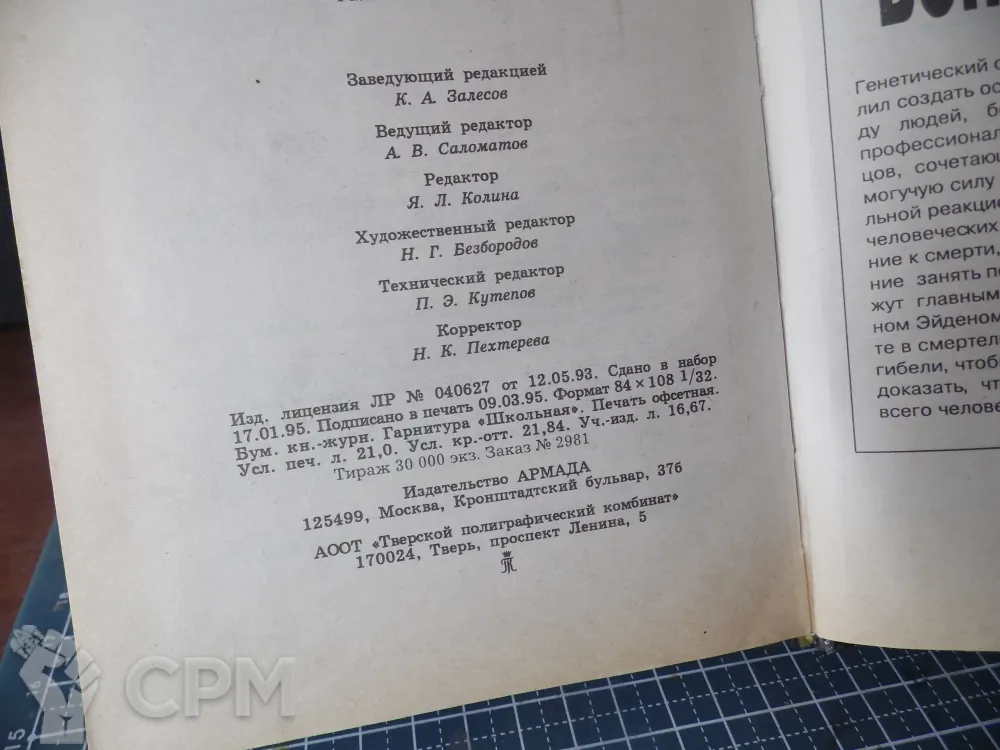 Заведующий редакцией
К. А. Залесов
Ведущий редактор
А. В. Саломатов
Редактор
Я. Л. Колина
Художественный редактор
Н. Г. Безбородов
Технический редактор
П. Э. Кутепов
Корректор
Н. К. Пехтерева
Изд. лицензия ЛР № 040627 от 12.05.93. Сдано в набор
17.01.95. Подписано в печать 09.03.95. Формат 84×108 1/32.
Бум. кн.-журн. Гарнитура «Школьная». Печать офсетная.
Усл. печ. л. 21,0. Усл. кр.-отт. 21,84. Уч.-изд. л. 16,67.
Тираж 30 000 экз. Заказ № 2981
Издательство АРМАДА
125499, Москва, Кронштадтский бульвар, 37б
АООТ «Тверской полиграфический комбинат»
170024, Тверь, проспект Ленина, 5
Генетический
лил создать
ду людей,
профессионал
цов, сочетаю
могучую силу
льной реакци
человеческих
ние к смерти,
ние занять
жут главным
ном Эйденом
те в смертел
гибели, чтоб
доказать, чт
всего челове
15
CPM